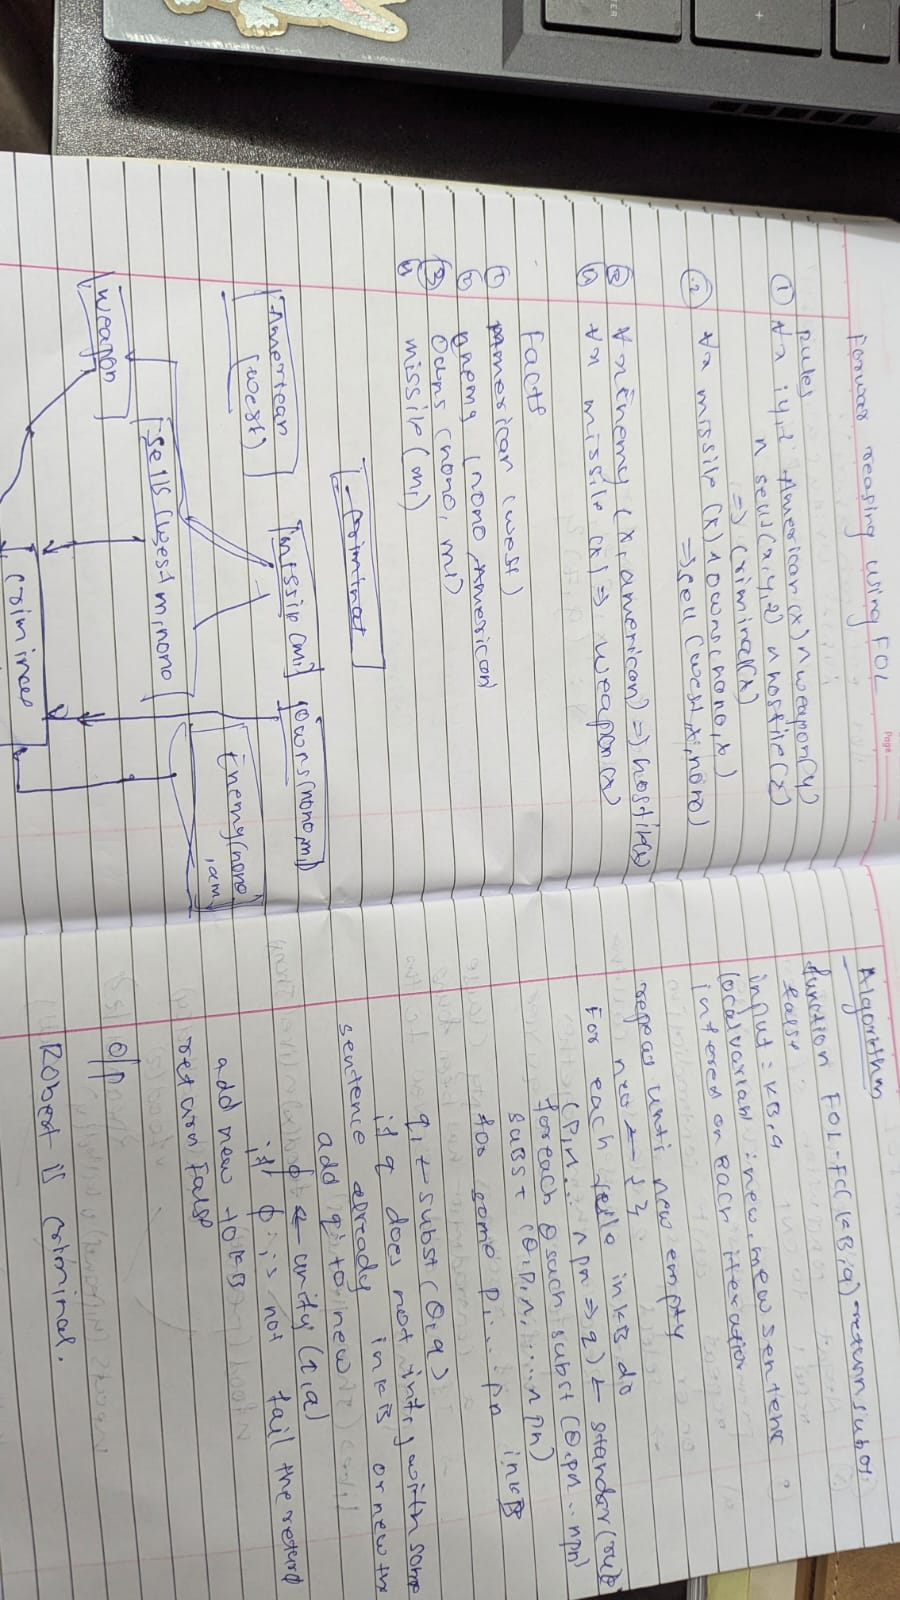 Forwar reasing using FOL
Rules
① ∀x, y, z American(x) ∧ weapon(y)
∧ sells(x, y, z) ∧ hostile(z)
=> criminal(x)
② ∀x missile(x) ∧ owns(nono, x)
=> sell(west, x, nono)
③ ∀x Enemy(x, american) => hostile(x)
④ ∀x missile(x) => weapon(x)
Facts
① American(west)
② Enemy(nono, American)
③ Owns(nono, m1)
④ missile(m1)
Criminal
American (west)
missile(m1)
Owns(nono, m1)
weapon
Sells(west, m, nono)
Enemy(nono, am)
Criminal
Page
Algorithm
function FOL-FC(KB, q) return subor
false
input: KB, q
local varian: new, new sentence
intered on each iteration
repeat until new empty
new ← { }
For each rule in KB do
(p1 ∧ ... ∧ pn => q) ← standar(rule)
for each θ such subst (θ, pn .. ∧ pn)
= subst (θ, p1, ∧ ..... ∧ pn)
for some p1 ... pn in KB
q1 ← subst(θ, q)
if q does not intify with some
sentence already in KB or new then
add q to new
ϕ ← unify(q, a)
if ϕ is not fail the return
add new to KB
return False
O/P
Robert is criminal.